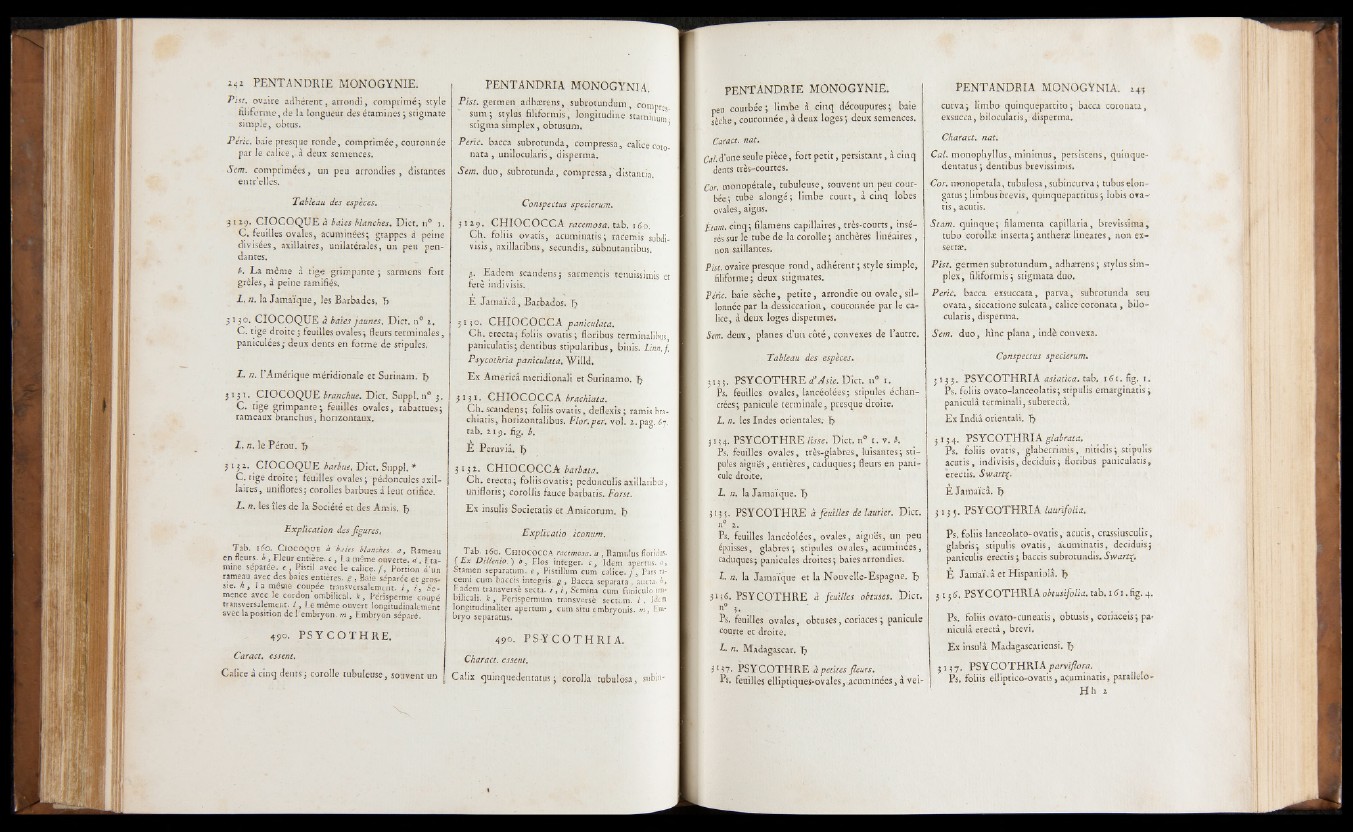 242 PENTANDRIE MONOGYNIE.
Pist. ovaire adhérent, arrondi, comprimé; style
filiforme, de la longueur des étamines; stigmate
simple, obtus.
Péric. baie presque ronde, comprimée, couronnée
par le calice, à deux semences.
Sem. comprimées, un peu arrondies, distantes
entr'elles.
Tableau des espèces.
3129. CIOCOQUE à baies blanches. Dict. n° 1.
C. feuilles ovales, acuminées; grappes à peine
divisées, axillaires, unilatérales, un peu pen-
dantes.
b. La même à tige grimpante; sarmens fort
grêles, à peine ramifiés.
L. n. la Jamaïque, les Barbades. ♄
3130. CIOCOQUE à baies jaunes. Dict. n° 2.
C. tige droite; feuilles ovales; fleurs terminales,
paniculées; deux dents en forme de stipules.
L. n. l'Amérique méridionale et Surinam. ♄
3131. CIOCOQUE branchue. Dict. Suppl. n° 3.
C. tige grimpante; feuilles ovales, rabattues;
rameaux branchus, horizontaux.
L. n. le Pérou. ♄
3132. CIOCOQUE barbue. Dict. Suppl. *
C. tige droite; feuilles ovales; pédoncules axil-
laires, uniflores; corolles barbues à leur orifice.
L. n. les îles de la Société et des Amis. ♄
Explication des figures.
Tab. 160. CIOCOQUE à baies blanches. a, Rameau
en fleurs. b, Fleur entière. c, La même ouverte. d, Eta-
mine séparée. e, Pistil avec le calice. f, Portion d'un
rameau avec des baies entières. g, Baie séparée et gros-
sie. h, La même coupée transversalement. i, i, Se-
mence avec le cordon ombilical. k, Périsperme coupé
transversalement. l, Le même ouvert longitudinalement
avec la position de l'embryon. m, Embryon séparé.
490. PSYCOTHRE.
Caract. essent.
Calice à cinq dents; corolle tubuleuse, souvent un
PENTANDRIA MONOGYNIA.
Pist. germen adhærens, subrotundum, compres-
sum; stylus filiformis, longitudine staminum;
stigma simplex, obtusum.
Peric. bacca subrotunda, compressa, calice coro-
nata, unilocularis, disperma.
Sem. duo, subrotunda, compressa, distantia.
Conspectus specierum.
3129. CHIOCOCCA racemosa. tab. 160.
Ch. foliis ovatis, acuminatis; racemis subdi-
visis, axillaribus, secundis, subnutantibus.
β. Eadem scandens; sarmentis tenuissimis et
ferè indivisis.
È Jamaïcâ, Barbados. ♄
3130. CHIOCOCCA paniculata.
Ch. erecta; foliis ovatis; floribus terminalibus,
paniculatis; dentibus stipularibus, binis. Linn. f.
Psycothria paniculata. Willd.
Ex Americâ meridionali et Surinamo. ♄
3131. CHIOCOCCA brachiata.
Ch. scandens; foliis ovatis, deflexis; ramis bra-
chiatis, horizontalibus. Flor. per. vol. 2. pag. 67.
tab. 219. fig. b.
È Peruviâ. ♄
3132. CHIOCOCCA barbata.
Ch. erecta; foliis ovatis; pedunculis axillaribus,
unifloris; corollis fauce barbatis. Forst.
Ex insulis Societatis et Amicorum. ♄
Explicatio iconum.
Tab. 160. CHIOCOCCA racemosa. a, Ramulus floridus.
(Ex Dillenio.) b, Flos integer. c, Idem apertus. d,
Stamen separatum. e, Pistillum cum calice. f, Pars ra-
cemi cum baccis integris. g, Bacca separata, aucta. h,
Eadem transversè secta. i, i, Semina cum funiculo um-
bilicali. k, Perispermum transversè sectum. l, Idem
longitudinaliter apertum, cum situ embryonis. m, Em-
bryo separatus.
490. PSYCOTHRIA.
Charact. essent.
Calix quinquedentatus; corolla tubulosa, subin-
PENTANDRIE MONOGYNIE.
peu courbée; limbe à cinq découpures; baie
sèche, couronnée, à deux loges; deux semences.
Caract. nat.
Cal. d'une seule pièce, fort petit, persistant, à cinq
dents très-courtes.
Cor. monopétale, tubuleuse, souvent un peu cour-
bée; tube alongé; limbe court, à cinq lobes
ovales, aigus.
Etam. cinq; filamens capillaires, très-courts, insé-
rés sur le tube de la corolle; anthères linéaires,
non saillantes.
Pist. ovaire presque rond, adhérent; style simple,
filiforme; deux stigmates.
Péric. baie sèche, petite, arrondie ou ovale, sil-
lonnée par la dessiccation, couronnée par le ca-
lice, à deux loges dispermes.
Sem. deux, planes d'un côté, convexes de l'autre.
Tableau des espèces.
3133. PSYCOTHRE d'Asie. Dict. n° 1.
Ps. feuilles ovales, lancéolées; stipules échan-
crées; panicule terminale, presque droite.
L. n. les Indes orientales. ♄
3134. PSYCOTHRE lisse. Dict. n° 1. v. b.
Ps. feuilles ovales, très-glabres, luisantes; sti-
pules aiguës, entières, caduques; fleurs en pani-
cule droite.
L. n. la Jamaïque. ♄
3135. PSYCOTHRE à feuilles de laurier. Dict.
n° 2.
Ps. feuilles lancéolées, ovales, aiguës, un peu
épaisses, glabres; stipules ovales, acuminées,
caduques; panicules droites; baies arrondies.
L. n. la Jamaïque et la Nouvelle-Espagne. ♄
3136. PSYCOTHRE à feuilles obtuses. Dict.
n° 3.
Ps. feuilles ovales, obtuses, coriaces; panicule
courte et droite.
L. n. Madagascar. ♄
3137. PSYCOTHRE à petites fleurs.
Ps. feuilles elliptiques-ovales, acuminées, à vei-
PENTANDRIA MONOGYNIA. 243
curva; limbo quinquepartito; bacca coronata,
exsucca, bilocularis, disperma.
Charact. nat.
Cal. monophyllus, minimus, persistens, quinque-
dentatus; dentibus brevissimis.
Cor. monopetala, tubulosa, subincurva; tubus elon-
gatus; limbus brevis, quinquepartitus; lobis ova-
tis, acutis.
Stam. quinque; filamenta capillaria, brevissima,
tubo corollæ inserta; antheræ lineares, non ex-
sertæ.
Pist. germen subrotundum, adhærens; stylus sim-
plex, filiformis; stigmata duo.
Peric. bacca exsuccata, parva, subrotunda seu
ovata, siccatione sulcata, calice coronata, bilo-
cularis, disperma.
Sem. duo, hinc plana, indè convexa.
Conspectus specierum.
3133. PSYCOTHRIA asiatica. tab. 161. fig. 1.
Ps. foliis ovato-lanceolatis; stipulis emarginatis;
paniculâ terminali, suberectâ.
Ex Indiâ orientali. ♄
3134. PSYCOTHRIA glabrata.
Ps. foliis ovatis, glaberrimis, nitidis; stipulis
acutis, indivisis, deciduis; floribus paniculatis,
erectis. Swartz.
È Jamaïcâ. ♄
3135. PSYCOTHRIA laurifolia.
Ps. foliis lanceolato-ovatis, acutis, crassiusculis,
glabris; stipulis ovatis, acuminatis, deciduis;
paniculis erectis; baccis subrotundis. Swartz.
È Jamaïcâ et Hispaniolâ. ♄
3136. PSYCOTHRIA obtusifolia. tab. 161. fig. 4.
Ps. foliis ovato-cuneatis, obtusis, coriaceis; pa-
niculâ erectâ, brevi.
Ex insulâ Madagascariensi. ♄
3137. PSYCOTHRIA parviflora.
Ps. foliis elliptico-ovatis, acuminatis, parallelo-
Hh 2